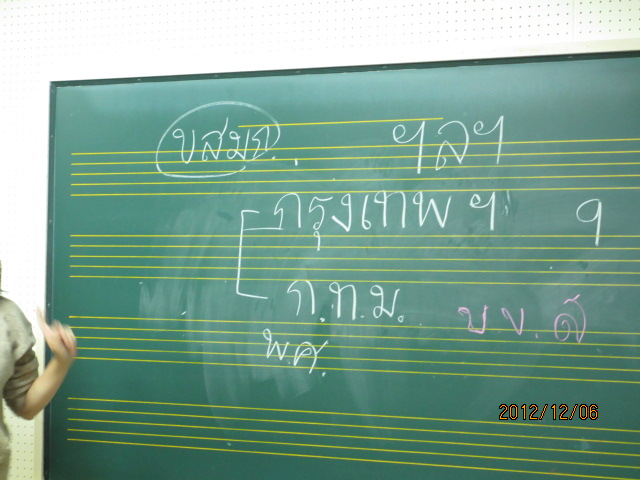 ขสมก. ฯลฯ
กรุงเทพ ฯ ๆ
ก.ท.ม.
พ.ศ.
2012/12/06